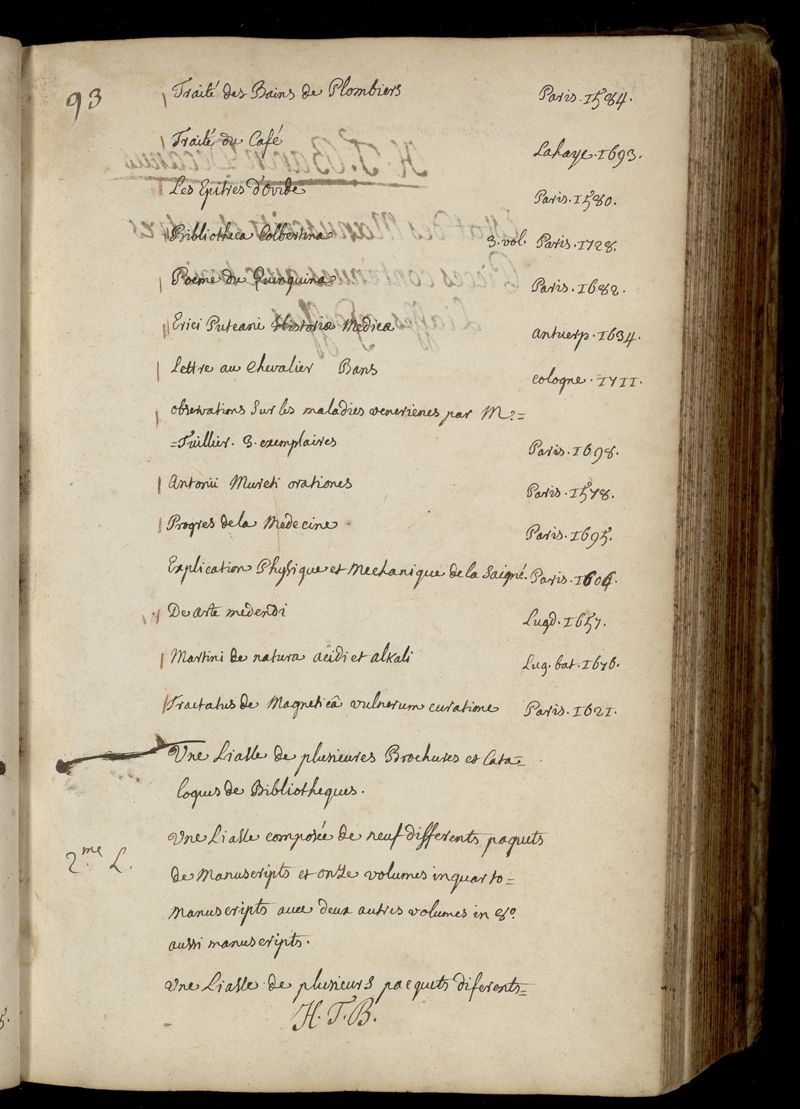 93
Traité des Bains de Plombiers Paris. 1584.
Traité du Café Lahaye. 1693.
Les Epitres d'ovide Paris. 1580.
Bibliotheca Colbertina 3. vol. Paris. 1728.
Poeme du Quinquina Paris. 1682.
Erici Puteani Historiæ Medicæ Antuerp. 1634.
Lettre au Chevalier Bans cologne. 1711.
observations sur les maladies veneriènes par Mr.=
=Tuillier. 3. exemplaires Paris. 1698.
Antonii Mureti orationes Paris. 1578.
Progres de la Medecine Paris. 1695.
Explication Physique et Mechanique de la Saigné. Paris. 1606.
De arte medendi Lugd. 1657.
Martini de natura acidi et alkali Lug. bat. 1676.
Tractatus de Magneticâ vulnerum curatione Paris. 1621.
Une Liasse de plusieures Brochures et Cata=
logues de Bibliotheques.
2.me L. Une Liasse composée de neuf differents paquets
de Manuscripts et onze volumes inquarto=
Manuscripts avec deux autres volumes in 8o.
aussi manuscripts.
Une Liasse de plusieurs pacquets diferents=
H. T. B.